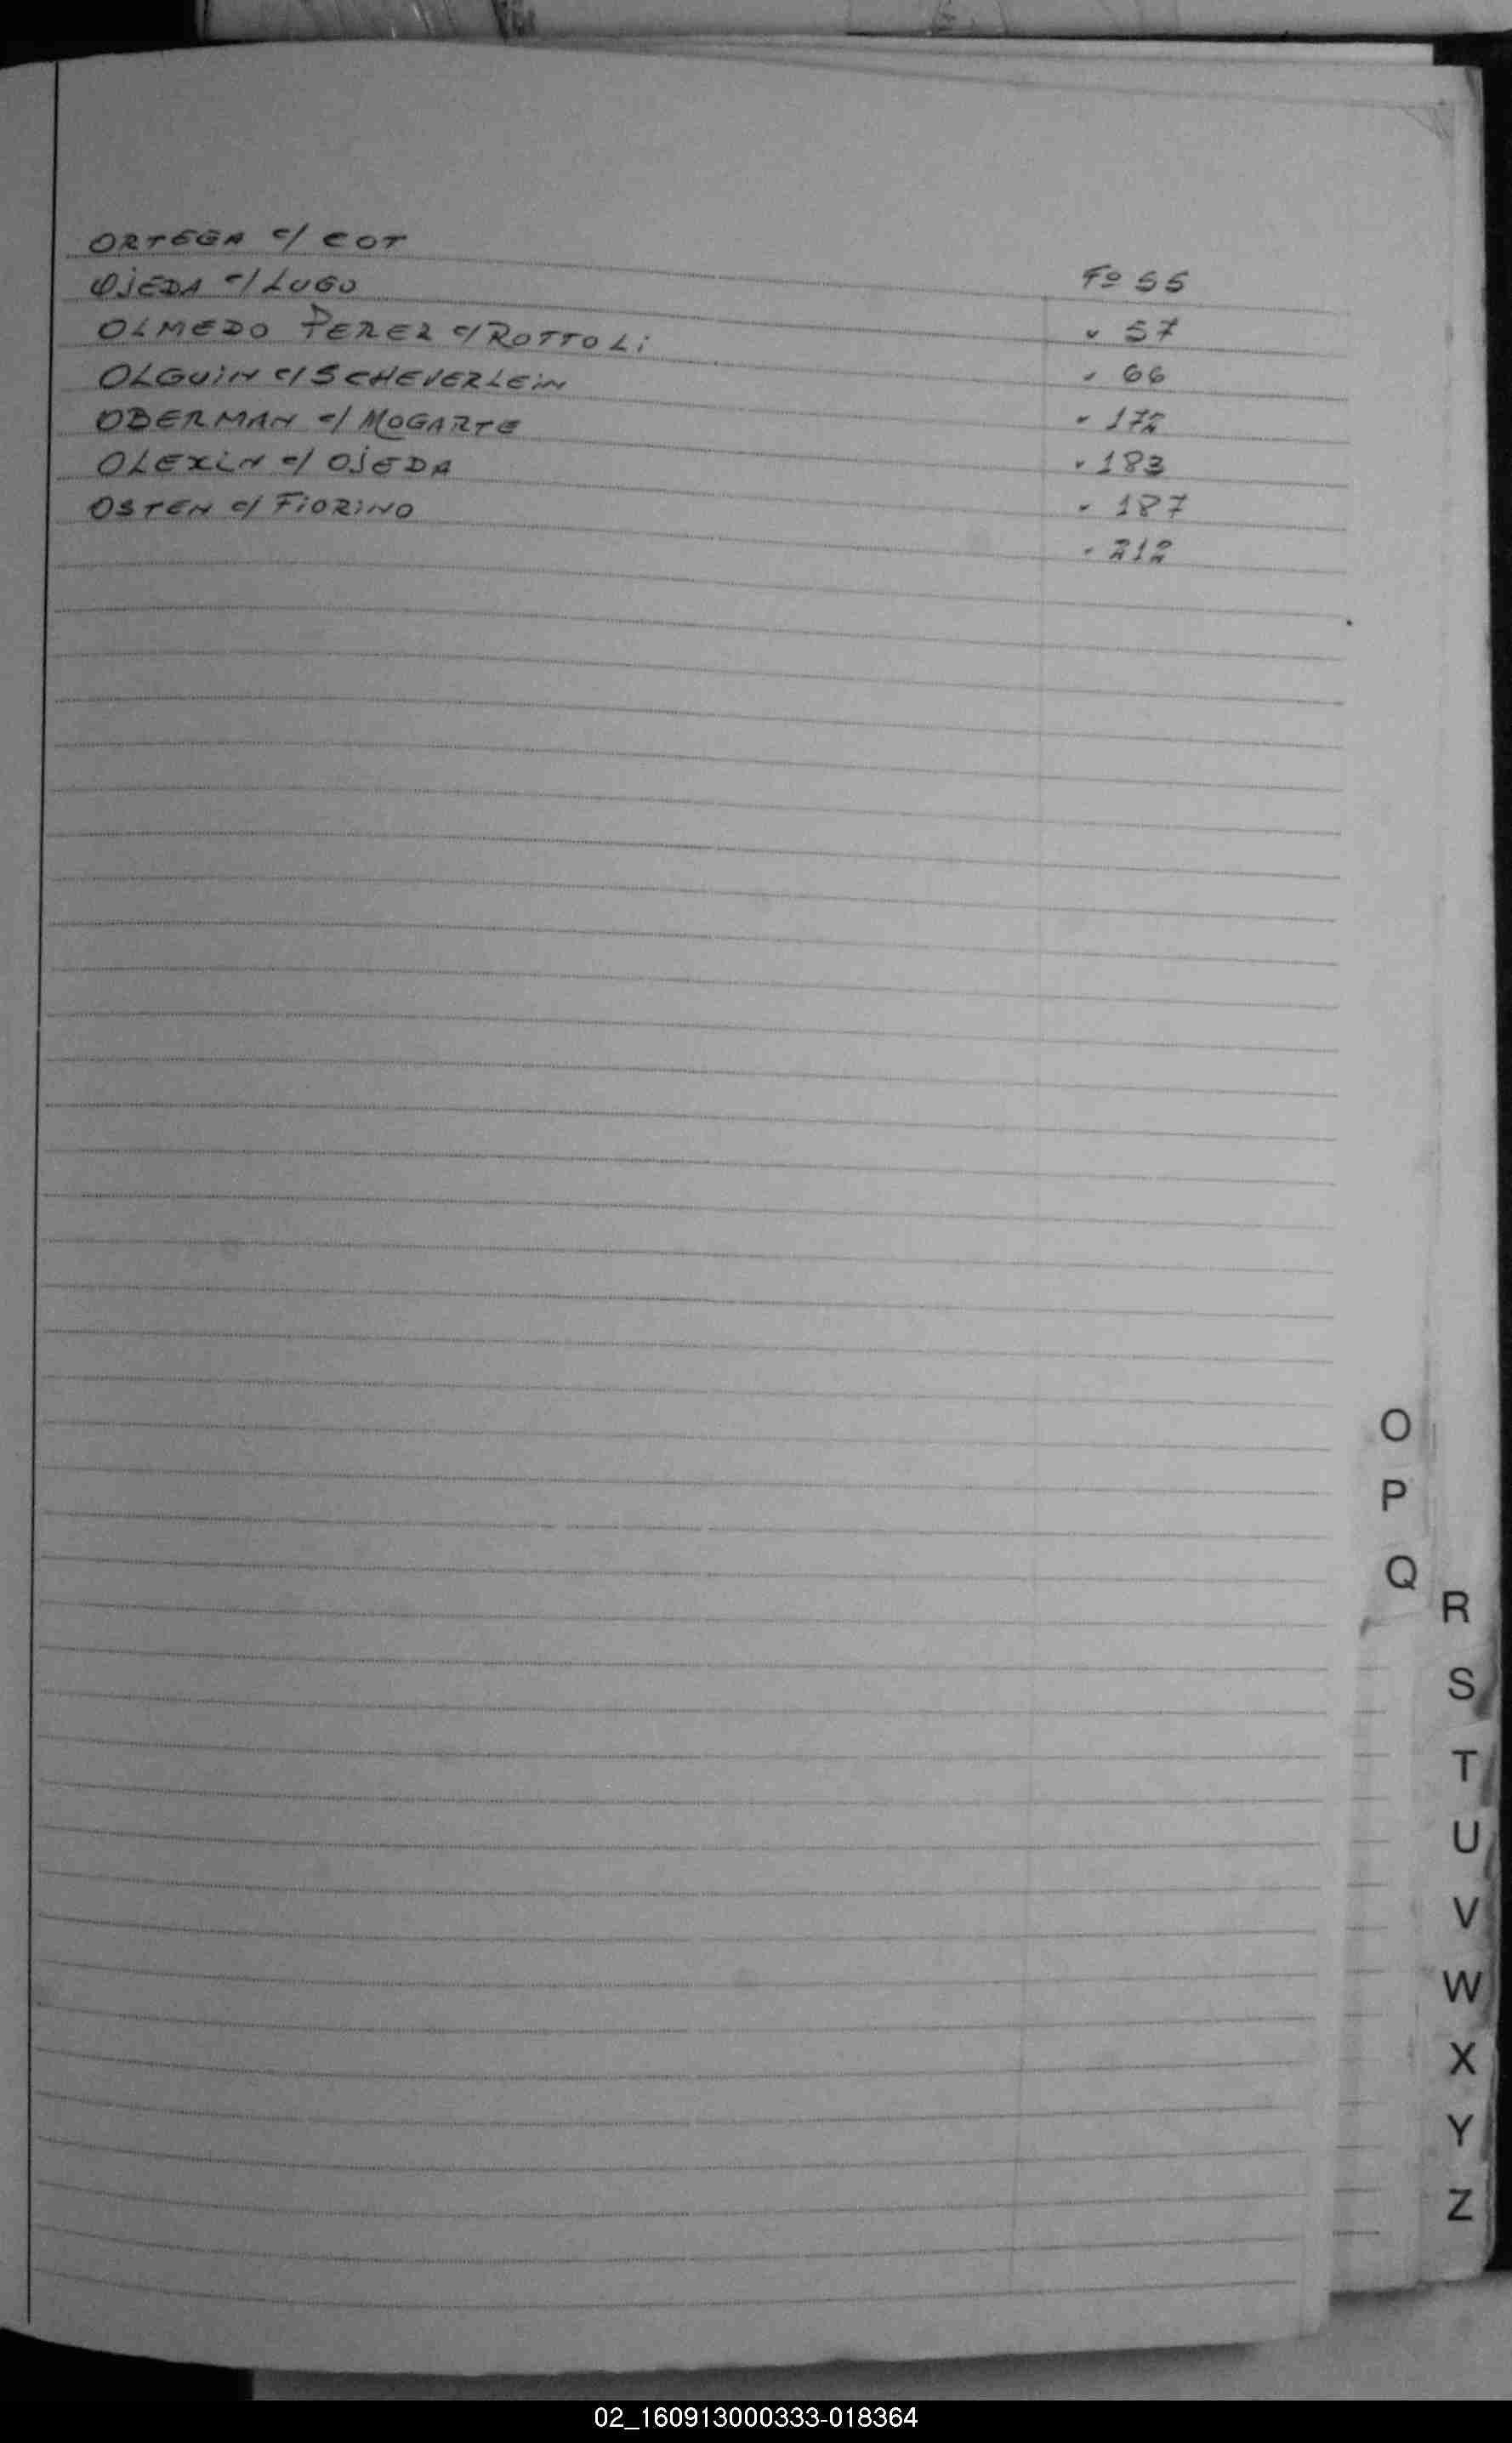 ORTEGA c/ COT Fº 55
OJEDA c/ LUGO " 57
OLMEDO PEREZ c/ ROTTOLi " 66
OLGUiN c/ SCHEVERLEiN " 172
OBERMAN c/ MOGARTE " 183
OLEXIN c/ OJEDA " 187
OSTEN c/ FiORiNO " 212
O
P
Q
R
S
T
U
V
W
X
Y
Z
02_160913000333-018364